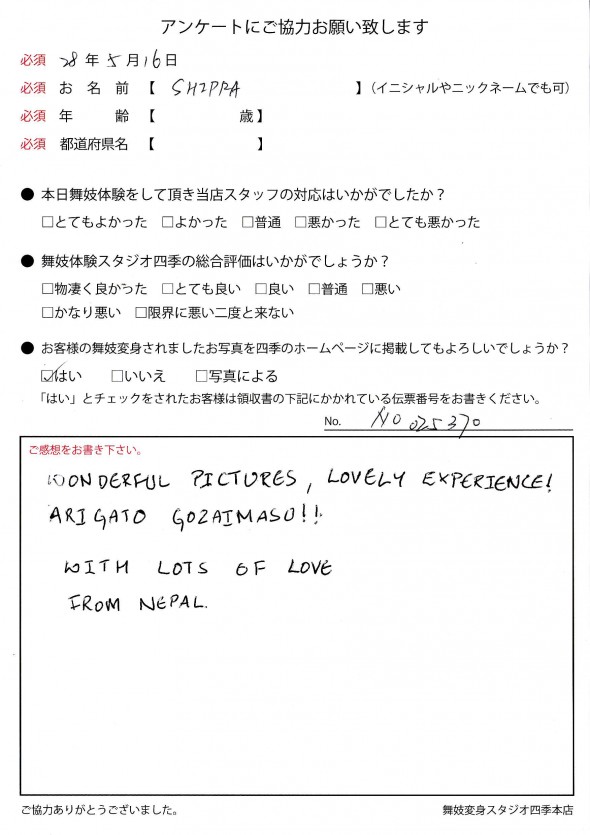 アンケートにご協力お願い致します
必須 28年5月16日
必須 お名前【 SHIPRA 】(イニシャルやニックネームでも可)
必須 年齢【 歳】
必須 都道府県名【 】
● 本日舞妓体験をして頂き当店スタッフの対応はいかがでしたか?
□とてもよかった □よかった □普通 □悪かった □とても悪かった
● 舞妓体験スタジオ四季の総合評価はいかがでしょうか?
□物凄く良かった □とても良い □良い □普通 □悪い
□かなり悪い □限界に悪い二度と来ない
● お客様の舞妓変身されましたお写真を四季のホームページに掲載してもよろしいでしょうか?
☑はい □いいえ □写真による
「はい」とチェックをされたお客様は領収書の下記にかかれている伝票番号をお書きください。
No. NO 025370
ご感想をお書き下さい。
WONDERFUL PICTURES, LOVELY EXPERIENCE!
ARIGATO GOZAIMASU!!
WITH LOTS OF LOVE
FROM NEPAL.
ご協力ありがとうございました。 舞妓変身スタジオ四季本店